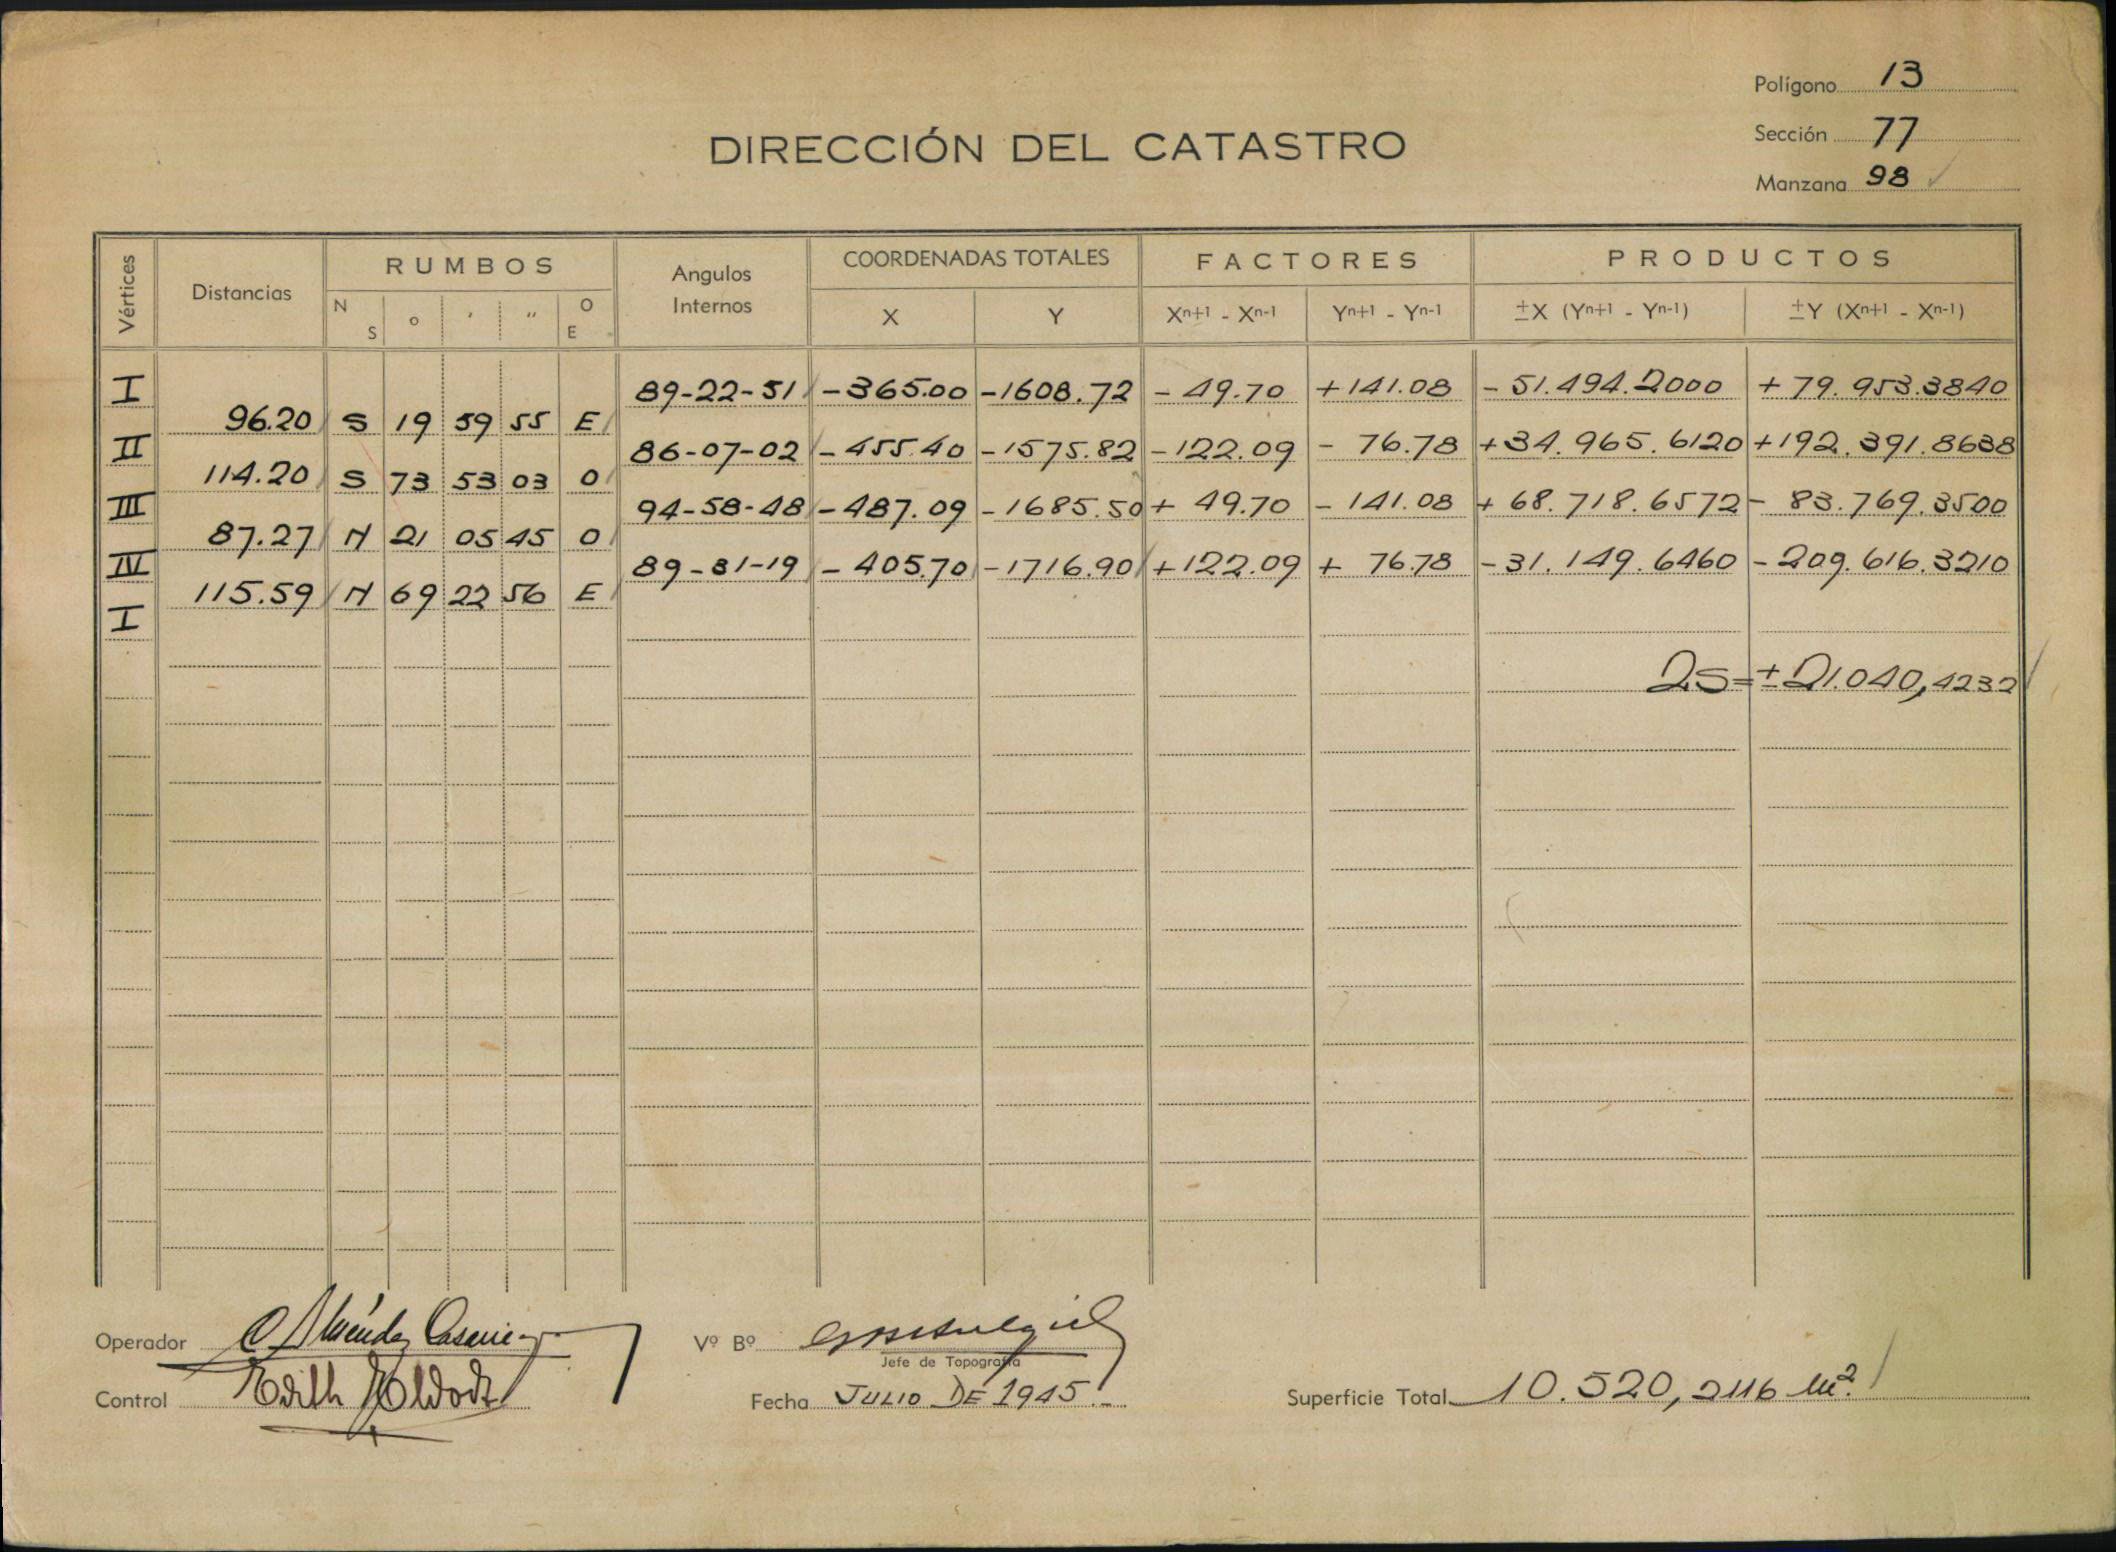 Polígono 13
Sección 77
Manzana 98
DIRECCIÓN DEL CATASTRO
Vértices Distancias RUMBOS Angulos Internos COORDENADAS TOTALES FACTORES PRODUCTOS
N S o ' " O E X Y Xn+1 - Xn-1 Yn+1 - Yn-1 ±X (Yn+1 - Yn-1) ±Y (Xn+1 - Xn-1)
I 89-22-51 -365.00 -1608.72 - 49.70 +141.08 - 51.494.2000 + 79.953.3840
96.20 S 19 59 55 E
II 86-07-02 -455.40 -1575.82 -122.09 - 76.78 +34.965.6120 +192.391.8638
114.20 S 73 53 03 O
III 94-58-48 -487.09 -1685.50 + 49.70 - 141.08 + 68.718.6572 - 83.769.3500
87.27 N 21 05 45 O
IV 89-31-19 -405.70 -1716.90 +122.09 + 76.78 -31.149.6460 -209.616.3210
115.59 N 69 22 56 E
I
2S=± 21.040,4232
Operador
Vº Bº
Jefe de Topografía
Control Edith
Fecha JULIO DE 1945.
Superficie Total 10.520,2116 m2.